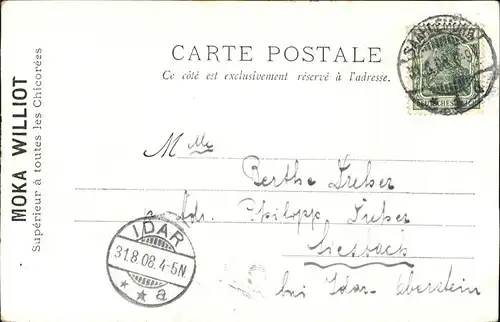 CARTE POSTALE
Ce côté est exclusivement réservé à l'adresse.
MOKA WILLIOT
Supérieur à toutes les Chicorées
Mlle
Berthe Treher
Adr. Philipp Treher
bei Idar-Oberstein
IDAR
31.8.08.4-5N.
* * a